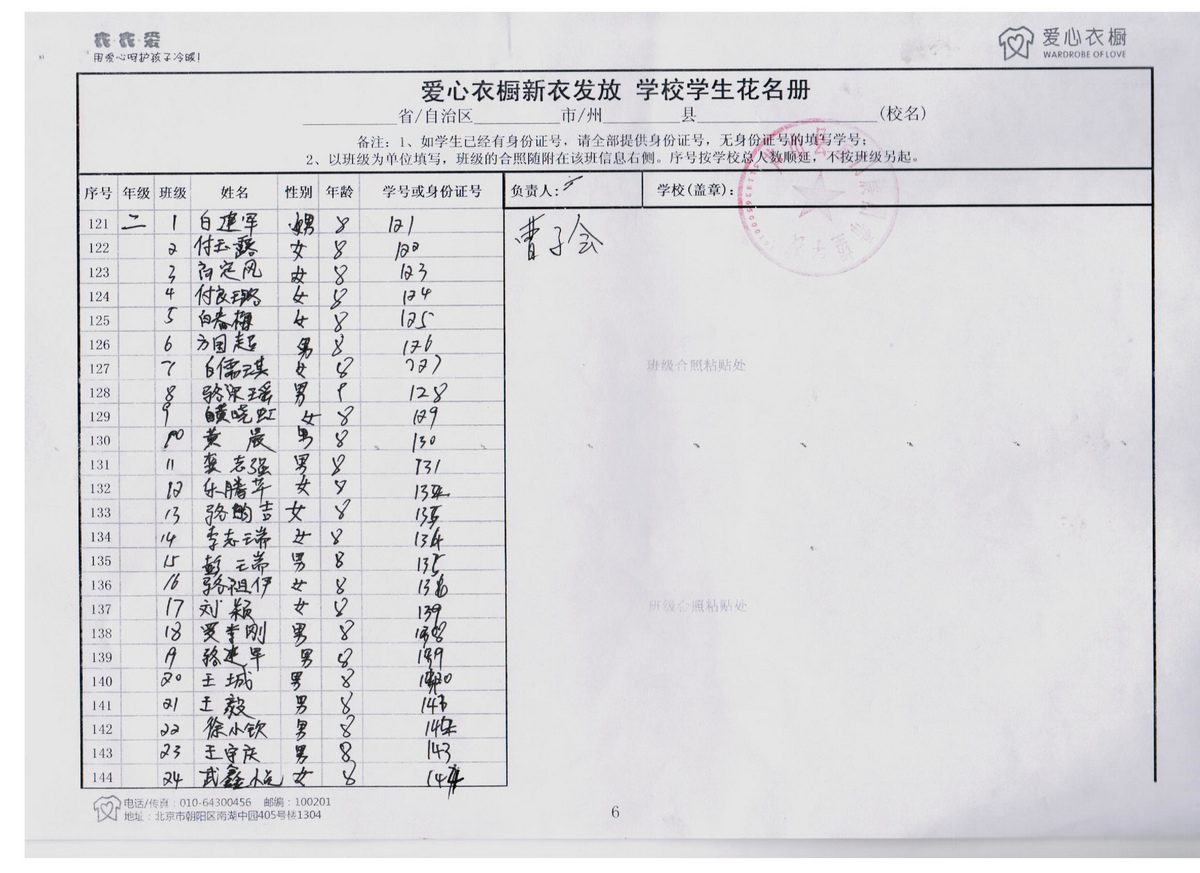 衣衣爱
爱心衣橱
用爱心呵护孩子冷暖!
WARDROBE OF LOVE
爱心衣橱新衣发放 学校学生花名册
________省/自治区________市/州________县________(校名)
备注:1、如学生已经有身份证号,请全部提供身份证号,无身份证号的填写学号;
2、以班级为单位填写,班级的合照随附在该班信息右侧。序号按学校总人数顺延,不按班级另起。
序号 年级 班级 姓名 性别 年龄 学号或身份证号 负责人: 学校(盖章):
曹子会
121 二 1 白建军 男 8 121
122 2 付玉露 女 8 122
123 3 向定风 女 8 123
124 4 付良璐 女 8 124
125 5 白春梅 女 8 125
126 6 方国超 男 8 126
127 7 白儒琪 女 8 127
班级合照粘贴处
128 8 骆梁瑶 男 9 128
129 9 黄晓虹 女 8 129
130 10 黄晨 男 8 130
131 11 龚志强 男 8 131
132 12 乐腾苹 女 8 132
133 13 骆 吉 女 8 133
134 14 李志瑞 女 8 134
135 15 彭云端 男 8 135
136 16 骆祖伊 女 8 136
137 17 刘颖 女 8 137
班级合照粘贴处
138 18 贾李刚 男 8 138
139 19 骆建军 男 8 139
140 20 王城 男 8 140
141 21 王毅 男 8 141
142 22 徐小钦 男 8 142
143 23 王守庆 男 8 143
144 24 武鑫 女 8 144
电话/传真:010-64300456 邮编:100201
地址:北京市朝阳区南湖中园405号楼1304
6